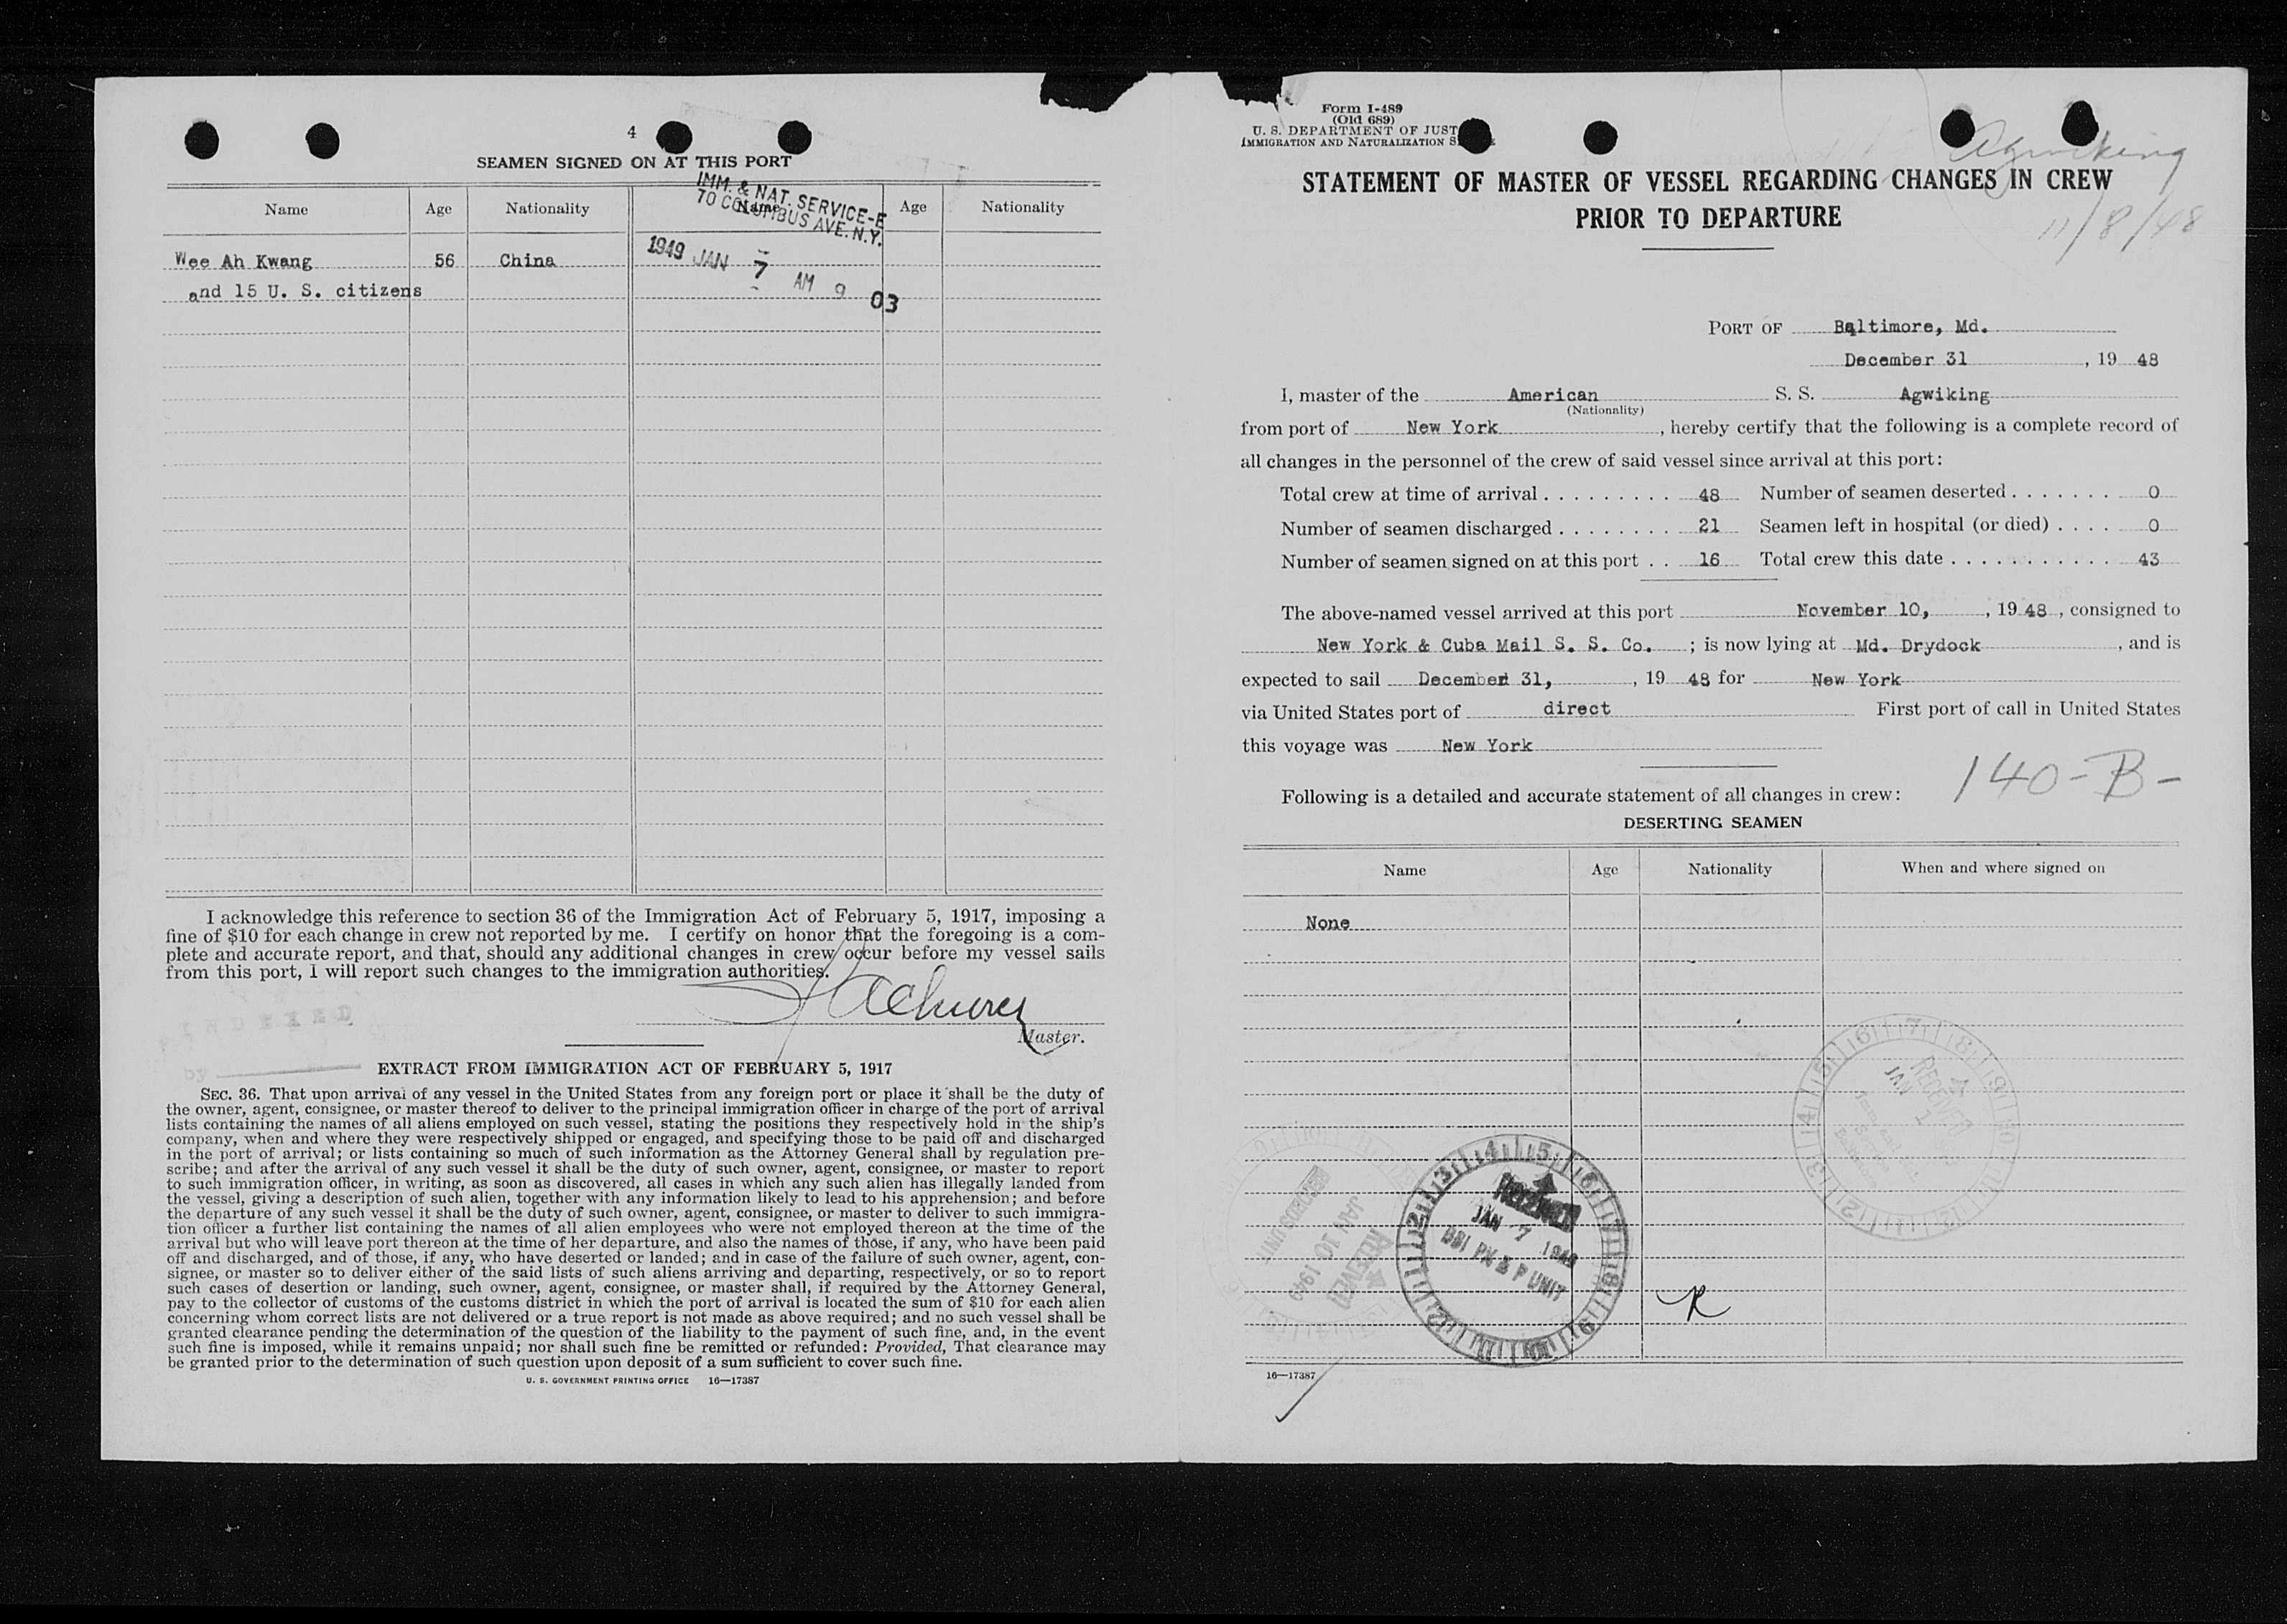 4
SEAMEN SIGNED ON AT THIS PORT
Name Age Nationality Name Age Nationality
IMM. & NAT. SERVICE-E
70 COLUMBUS AVE. N.Y.
1949 JAN 7 AM 9 03
Wee Ah Kwang 56 China
and 15 U. S. citizens
I acknowledge this reference to section 36 of the Immigration Act of February 5, 1917, imposing a
fine of $10 for each change in crew not reported by me. I certify on honor that the foregoing is a com-
plete and accurate report, and that, should any additional changes in crew occur before my vessel sails
from this port, I will report such changes to the immigration authorities.
Master.
INDEXED
by
EXTRACT FROM IMMIGRATION ACT OF FEBRUARY 5, 1917
SEC. 36. That upon arrival of any vessel in the United States from any foreign port or place it shall be the duty of
the owner, agent, consignee, or master thereof to deliver to the principal immigration officer in charge of the port of arrival
lists containing the names of all aliens employed on such vessel, stating the positions they respectively hold in the ship's
company, when and where they were respectively shipped or engaged, and specifying those to be paid off and discharged
in the port of arrival; or lists containing so much of such information as the Attorney General shall by regulation pre-
scribe; and after the arrival of any such vessel it shall be the duty of such owner, agent, consignee, or master to report
to such immigration officer, in writing, as soon as discovered, all cases in which any such alien has illegally landed from
the vessel, giving a description of such alien, together with any information likely to lead to his apprehension; and before
the departure of any such vessel it shall be the duty of such owner, agent, consignee, or master to deliver to such immigra-
tion officer a further list containing the names of all alien employees who were not employed thereon at the time of the
arrival but who will leave port thereon at the time of her departure, and also the names of those, if any, who have been paid
off and discharged, and of those, if any, who have deserted or landed; and in case of the failure of such owner, agent, con-
signee, or master so to deliver either of the said lists of such aliens arriving and departing, respectively, or so to report
such cases of desertion or landing, such owner, agent, consignee, or master shall, if required by the Attorney General,
pay to the collector of customs of the customs district in which the port of arrival is located the sum of $10 for each alien
concerning whom correct lists are not delivered or a true report is not made as above required; and no such vessel shall be
granted clearance pending the determination of the question of the liability to the payment of such fine, and, in the event
such fine is imposed, while it remains unpaid; nor shall such fine be remitted or refunded: Provided, That clearance may
be granted prior to the determination of such question upon deposit of a sum sufficient to cover such fine.
U. S. GOVERNMENT PRINTING OFFICE 16—17387
Form I-489
(Old 689)
U. S. DEPARTMENT OF JUST
IMMIGRATION AND NATURALIZATION S
Agwiking
11/8/48
STATEMENT OF MASTER OF VESSEL REGARDING CHANGES IN CREW
PRIOR TO DEPARTURE
PORT OF Baltimore, Md.
December 31, 19 48
I, master of the American S. S. Agwiking
(Nationality)
from port of New York, hereby certify that the following is a complete record of
all changes in the personnel of the crew of said vessel since arrival at this port:
Total crew at time of arrival 48 Number of seamen deserted 0
Number of seamen discharged 21 Seamen left in hospital (or died) 0
Number of seamen signed on at this port 16 Total crew this date 43
The above-named vessel arrived at this port November 10, , 19 48, consigned to
New York & Cuba Mail S. S. Co. ; is now lying at Md. Drydock, and is
expected to sail December 31, , 19 48 for New York
via United States port of direct First port of call in United States
this voyage was New York
140-B-
Following is a detailed and accurate statement of all changes in crew:
DESERTING SEAMEN
Name Age Nationality When and where signed on
None
RECEIVED
JAN
RECEIVED
JAN 10 1949
RECEIVED
JAN 7 1949
P UNIT
R
16—17387